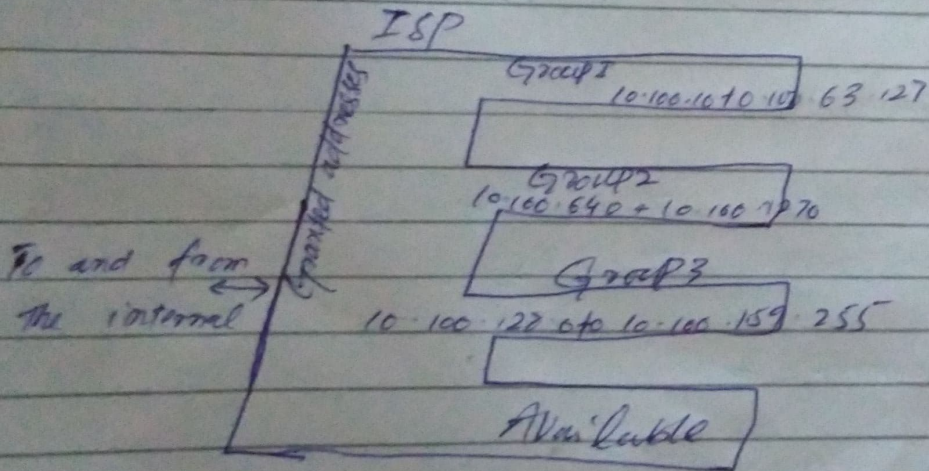 ISP
Group1
10.100.10 to 10 . 63 .127
Granted addresses
Group2
10.100.640
To and from
Group3
The internal
10.100.128 0to 10.100.159.255
Available